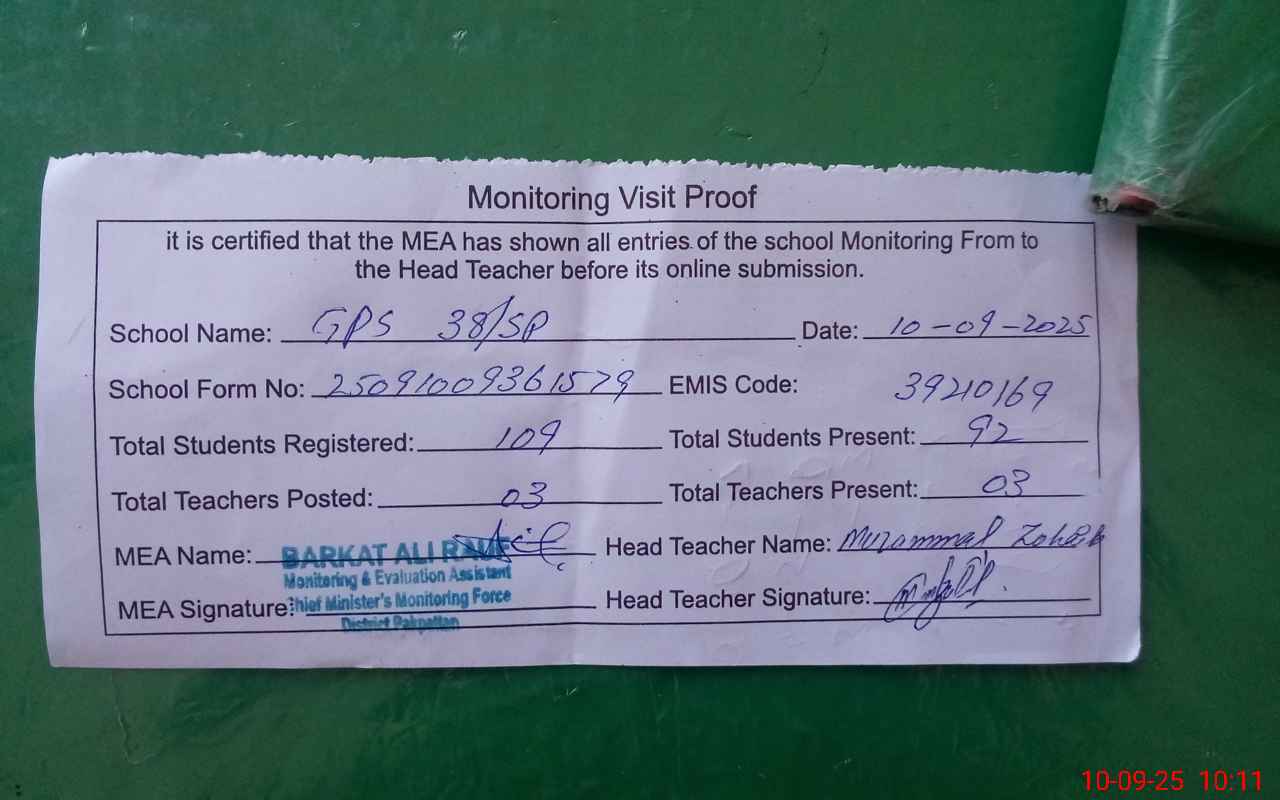 Monitoring Visit Proof
it is certified that the MEA has shown all entries of the school Monitoring From to
the Head Teacher before its online submission.
School Name: GPS 38/SP Date: 10-09-2025
School Form No: 25091009361579 EMIS Code: 39210169
Total Students Registered: 109 Total Students Present: 92
Total Teachers Posted: 03 Total Teachers Present: 03
MEA Name: BARKAT ALI Head Teacher Name:
Monitoring & Evaluation Assistant
MEA Signature: Chief Minister's Monitoring Force Head Teacher Signature:
District Pakpattan
10-09-25 10:11